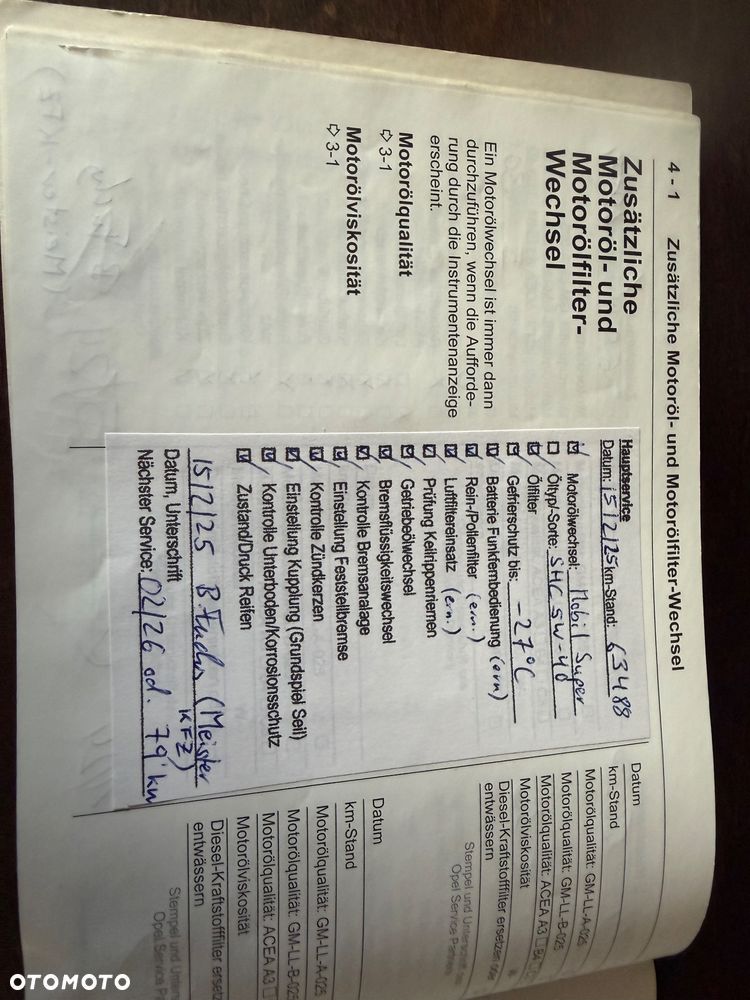 4 - 1 Zusätzliche Motoröl- und Motorölfilter-Wechsel
Zusätzliche
Motoröl- und
Motorölfilter-
Wechsel
Ein Motorölwechsel ist immer dann
durchzuführen, wenn die Aufforde-
rung durch die Instrumentenanzeige
erscheint.
Motorölqualität
⇨ 3-1
Motorölviskosität
⇨ 3-1
Hauptservice
Datum: 15/2/25 km-Stand: 63488
Motorölwechsel: Mobil Super
Öltyp/-Sorte: SHC 5W-40
Ölfilter
Gefrierschutz bis: -27°C
Batterie Funkfernbedienung (ern)
Rein-/Pollenfilter (ern.)
Luftfiltereinsatz (ern.)
Prüfung Keilrippenriemen
Getriebeölwechsel
Bremsflüssigkeitswechsel
Kontrolle Bremsanalage
Einstellung Feststellbremse
Kontrolle Zündkerzen
Einstellung Kupplung (Grundspiel Seil)
Kontrolle Unterboden/Korrosionsschutz
Zustand/Druck Reifen
15/2/25 B. Fuchs (Meister
KFZ)
Datum, Unterschrift
Nächster Service: 02/26 od. 79' km
Datum
km-Stand
Motorölqualität: GM-LL-A-025
Motorölqualität: GM-LL-B-025
Motorölqualität: ACEA A3 B4
Motorölviskosität
Diesel-Kraftstofffilter ersetzen oder
entwässern
Stempel und Unterschrift des
Opel Service Partners
Datum
km-Stand
Motorölqualität: GM-LL-A-025
Motorölqualität: GM-LL-B-025
Motorölqualität: ACEA A3
Motorölviskosität
Diesel-Kraftstofffilter ersetz
entwässern
Stempel und Unter
Opel Service Pa
OTOMOTO